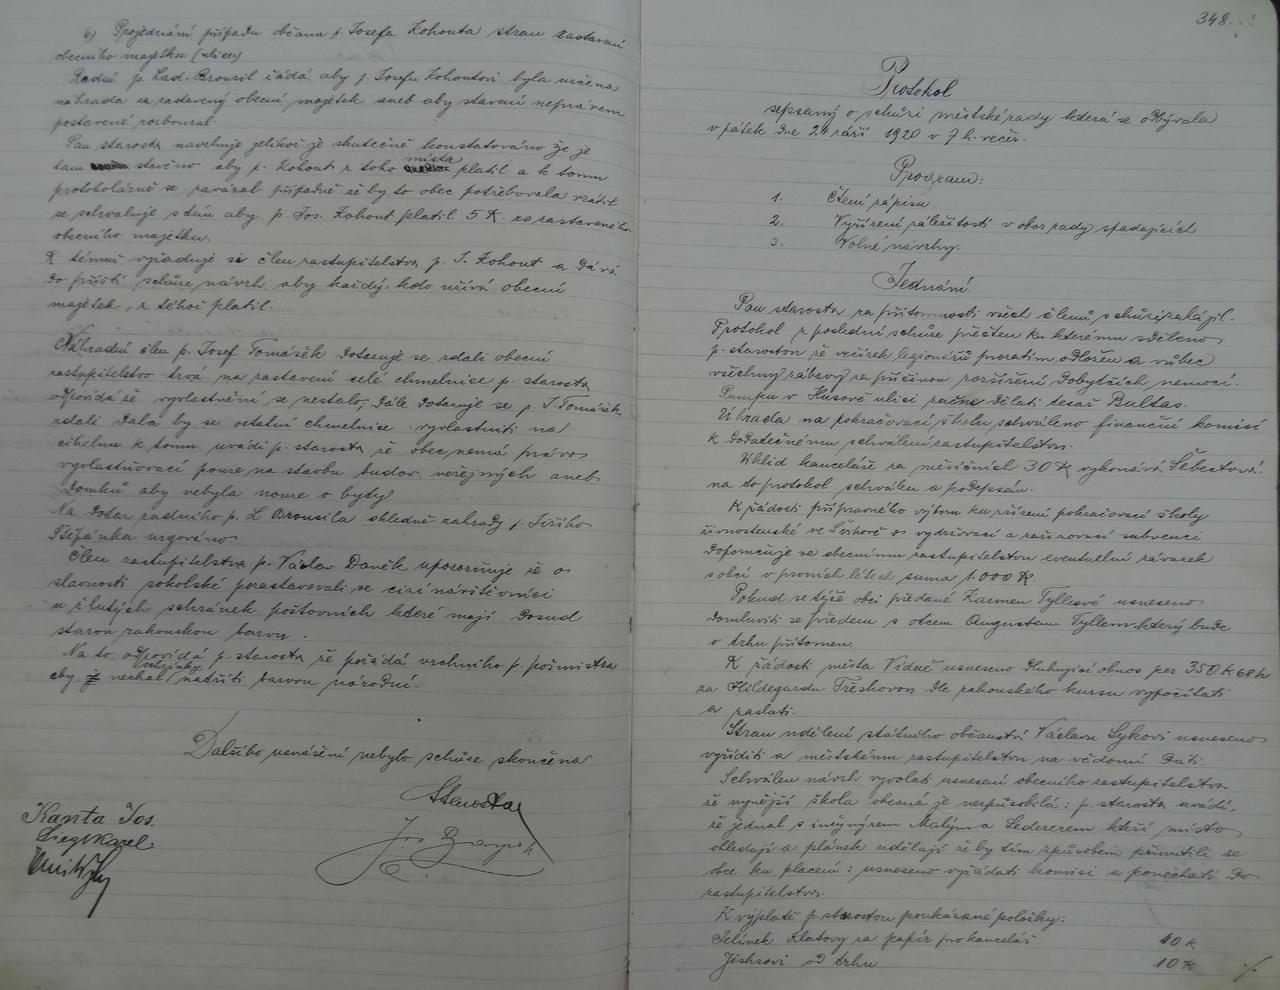 6) Projednání případu občana p. Josefa Kohouta stran zastavení
obecního majetku (ulice)
Radní p. Lad. Brousil žádá aby p. Josefu Kohoutovi byla určena
náhrada za zastavený obecní majetek aneb aby stavení neprávem
postavené rozboural.
Pan starosta navrhuje jelikož je skutečně konstatováno že je
tam stavěno aby p. Kohout z toho místa platil a k tomu
protokolárně se zavázal případně že by to obec potřebovala vrátil
se schvaluje s tím aby p. Jos. Kohout platil 5 K. ze zastaveného
obecního majetku.
K tému vyžaduje si člen zastupitelstva p. J. Kohout a dává
do příští schůze návrh aby každý, kdo užívá obecní
majetek, z téhož platil.
Náhradní člen p. Josef Tomášek dotazuje se zdali obecní
zastupitelstvo trvá na zastavení celé chmelnice p. starosta
odpovídá že vyvlastnění se nestalo, dále dotazuje se p. J. Tomášek
zdali dala by se ostatní chmelnice vyvlastniti na
cihelnu k tomu uvádí p. starosta že obec nemá právo
vyvlastňovací pouze na stavbu budov veřejných aneb
domků aby nebyla nouze o byty?
Na dotaz radního p. L Brousila ohledně zahrady p. Jiřího
Štěpánka urgováno
Člen zastupitelstva p. Václav Daněk upozorňuje že o
slavnosti sokolské pozastavovali se cizí návštěvníci
u žlutých schránek poštovních které mají dosud
starou rakouskou barvu.
Na to odpovídá p. starosta že požádá vrchního p. poštmistra
aby nechal schránky natříti barvou národní.
Dalšího usnášení nebylo schůze skončena
Starosta
Kanta Jos.
Siegl Karel.
348.
Protokol
sepsaný o schůzi městské rady která se odbývala
v pátek dne 24 září 1920 v 7 h. večer.
Program:
1. Čtení zápisu
2. Vyřízení záležitostí v obor rady spadajících
3. Volné návrhy.
Jednání
Pan starosta za přítomnosti všech členů schůzi zahájil.
Protokol z poslední schůze přečten ku kterému sděleno
p. starostou že večírek legionářů prozatím odložen a vůbec
všechny zábavy za příčinou rozšíření dobytčích nemocí.
Pumpu v Husově ulici začne dělati tesař Bultas.
Úhrada na pokračovací školu schváleno finanční komisí
k dodatečnému schválení zastupitelstvu.
Úklid kanceláře za měsíčních 30 K vykonává Šebestová
na to protokol schválen a podepsán.
K žádosti přípravného výboru ku zřízení pokračovací školy
živnostenské ve Švihově o vydržovací a zařizovací subvenci
doporučuje se obecnímu zastupitelstvu eventuelní závazek
s obcí v prvních létech suma 1.000 K.
Pokud se týče obci předané Karmen Tyllové usneseno
domluviti se předem s otcem Augustem Tyllem který bude
o trhu přítomen.
K žádosti města Vídně usneseno dluhující obnos per 350 K 68 h
za Hildegardu Treskovou dle rakouského kursu vypočítati
a zaslati.
Stran udělení státního občanství Václavu Sykovi usneseno
vyříditi a městskému zastupitelstvu na vědomí dáti.
Schválen návrh vyvolati usnesení obecního zastupitelstva
že nynější škola obecná je nezpůsobilá: p. starosta uvádí,
že jednal s inžinýrem Malým a Ledererem kteří místo
ohledají a plánek udělají že by tím způsobem přinutili se
obce ku placení: usneseno vyžádati komisi a ponechati do
zastupitelstva.
K výplatě p. starostou poukázané položky:
Jelínek Klatovy za papír pro kancelář 40 K
Jishrovi od trhu 10 K
./.